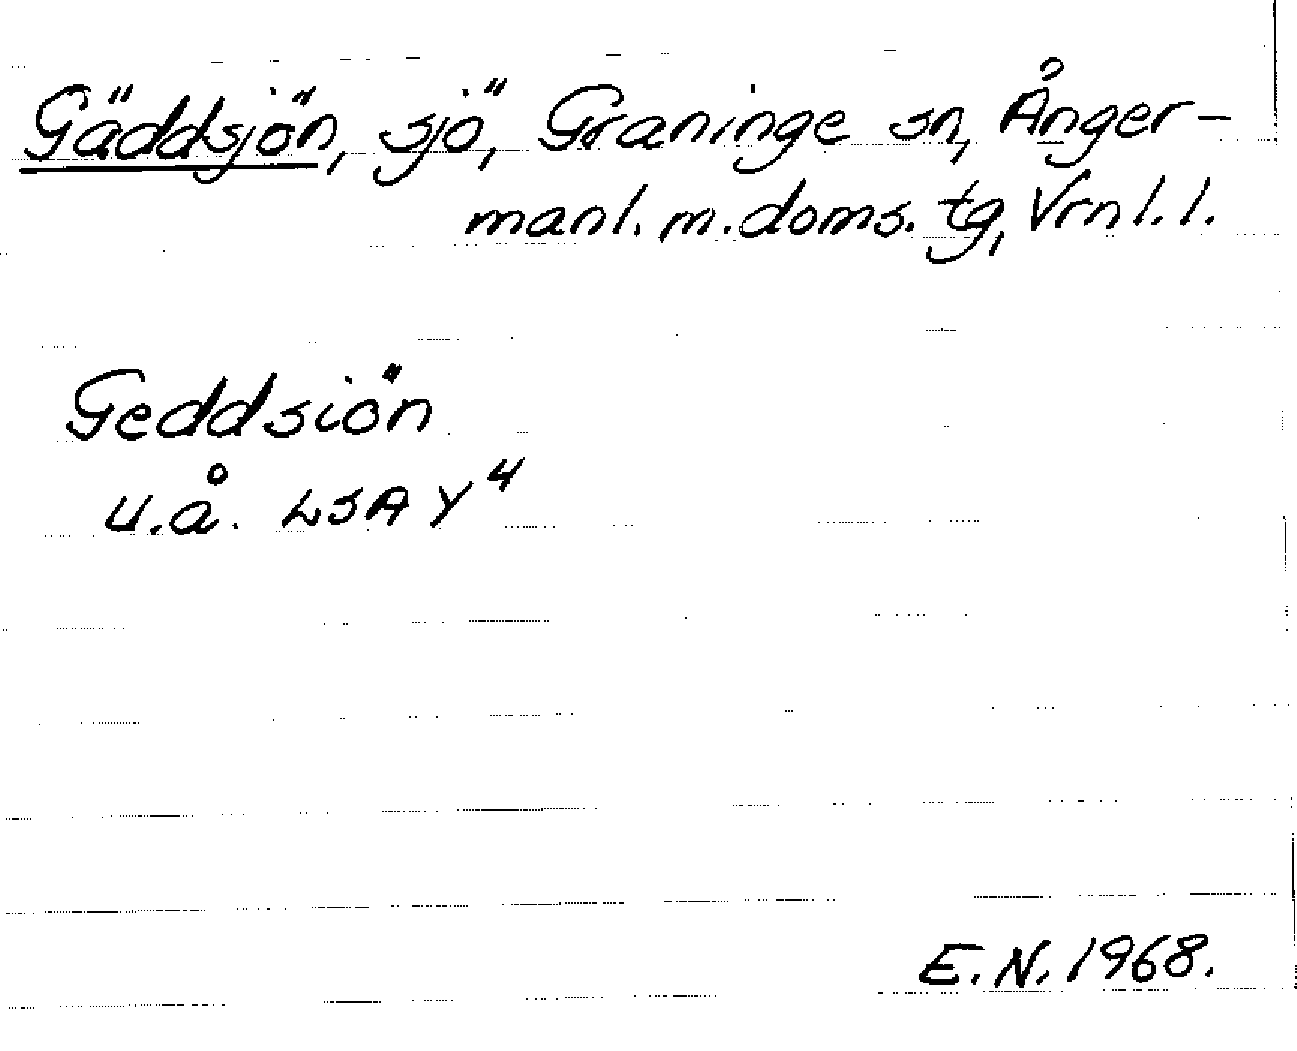 Gäddsjön, sjö, Graninge sn, Ånger-
manl. m. doms. tg, Vrnl. l.
Geddsiön
u.å. LSA Y4
E.N. 1968.